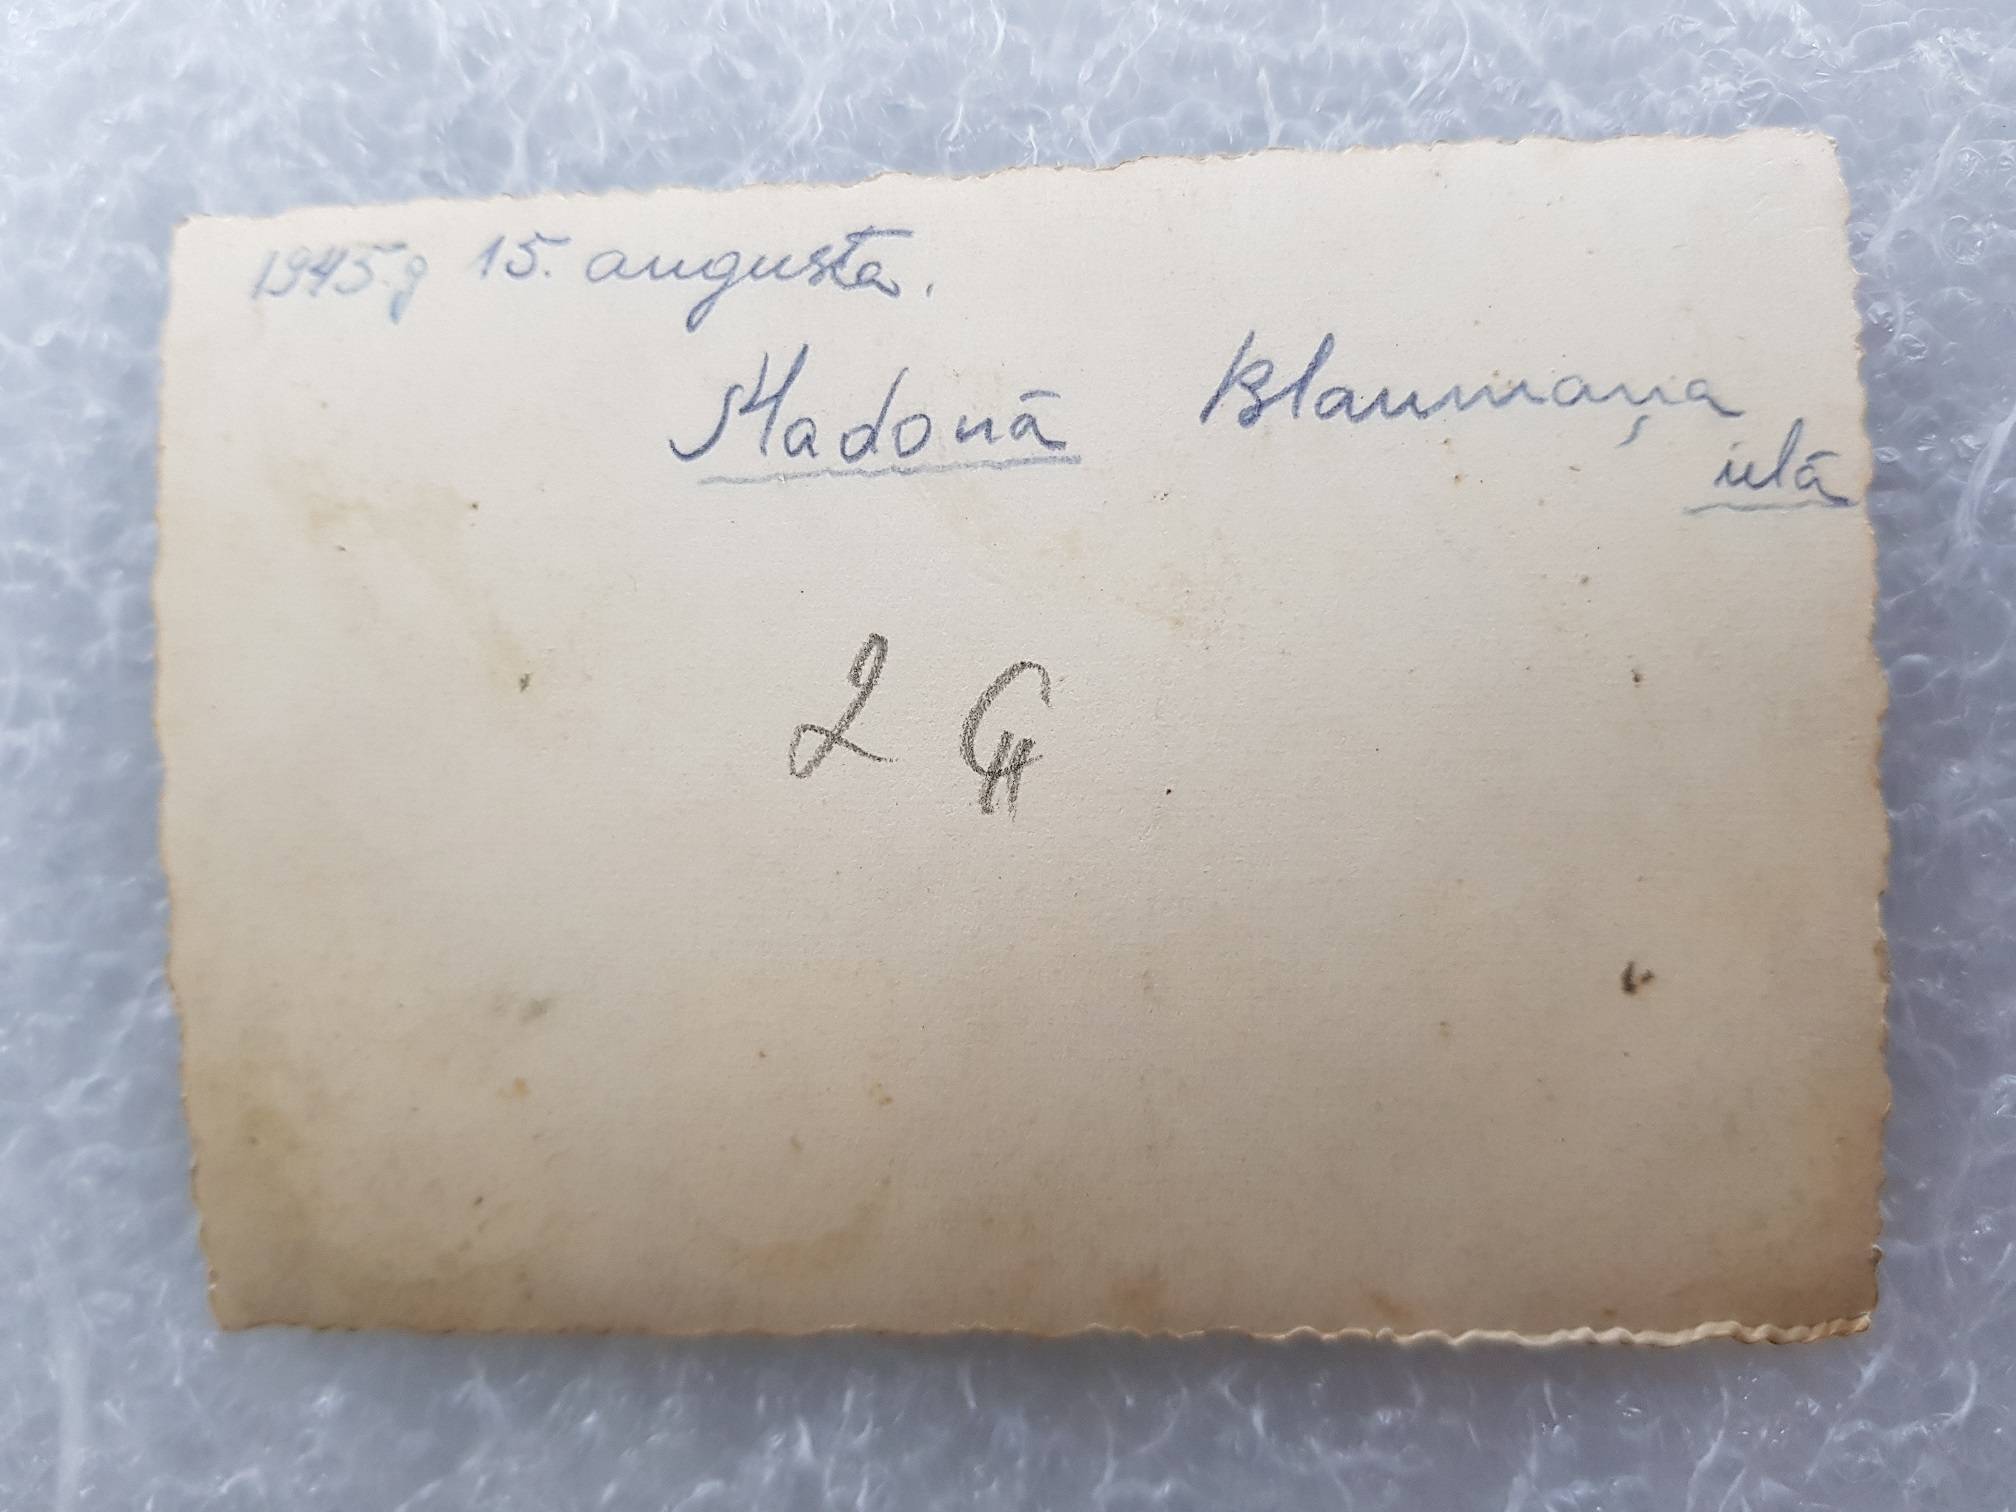 1945.g 15. augusta.
Madonā Blaumaņa
ielā
2